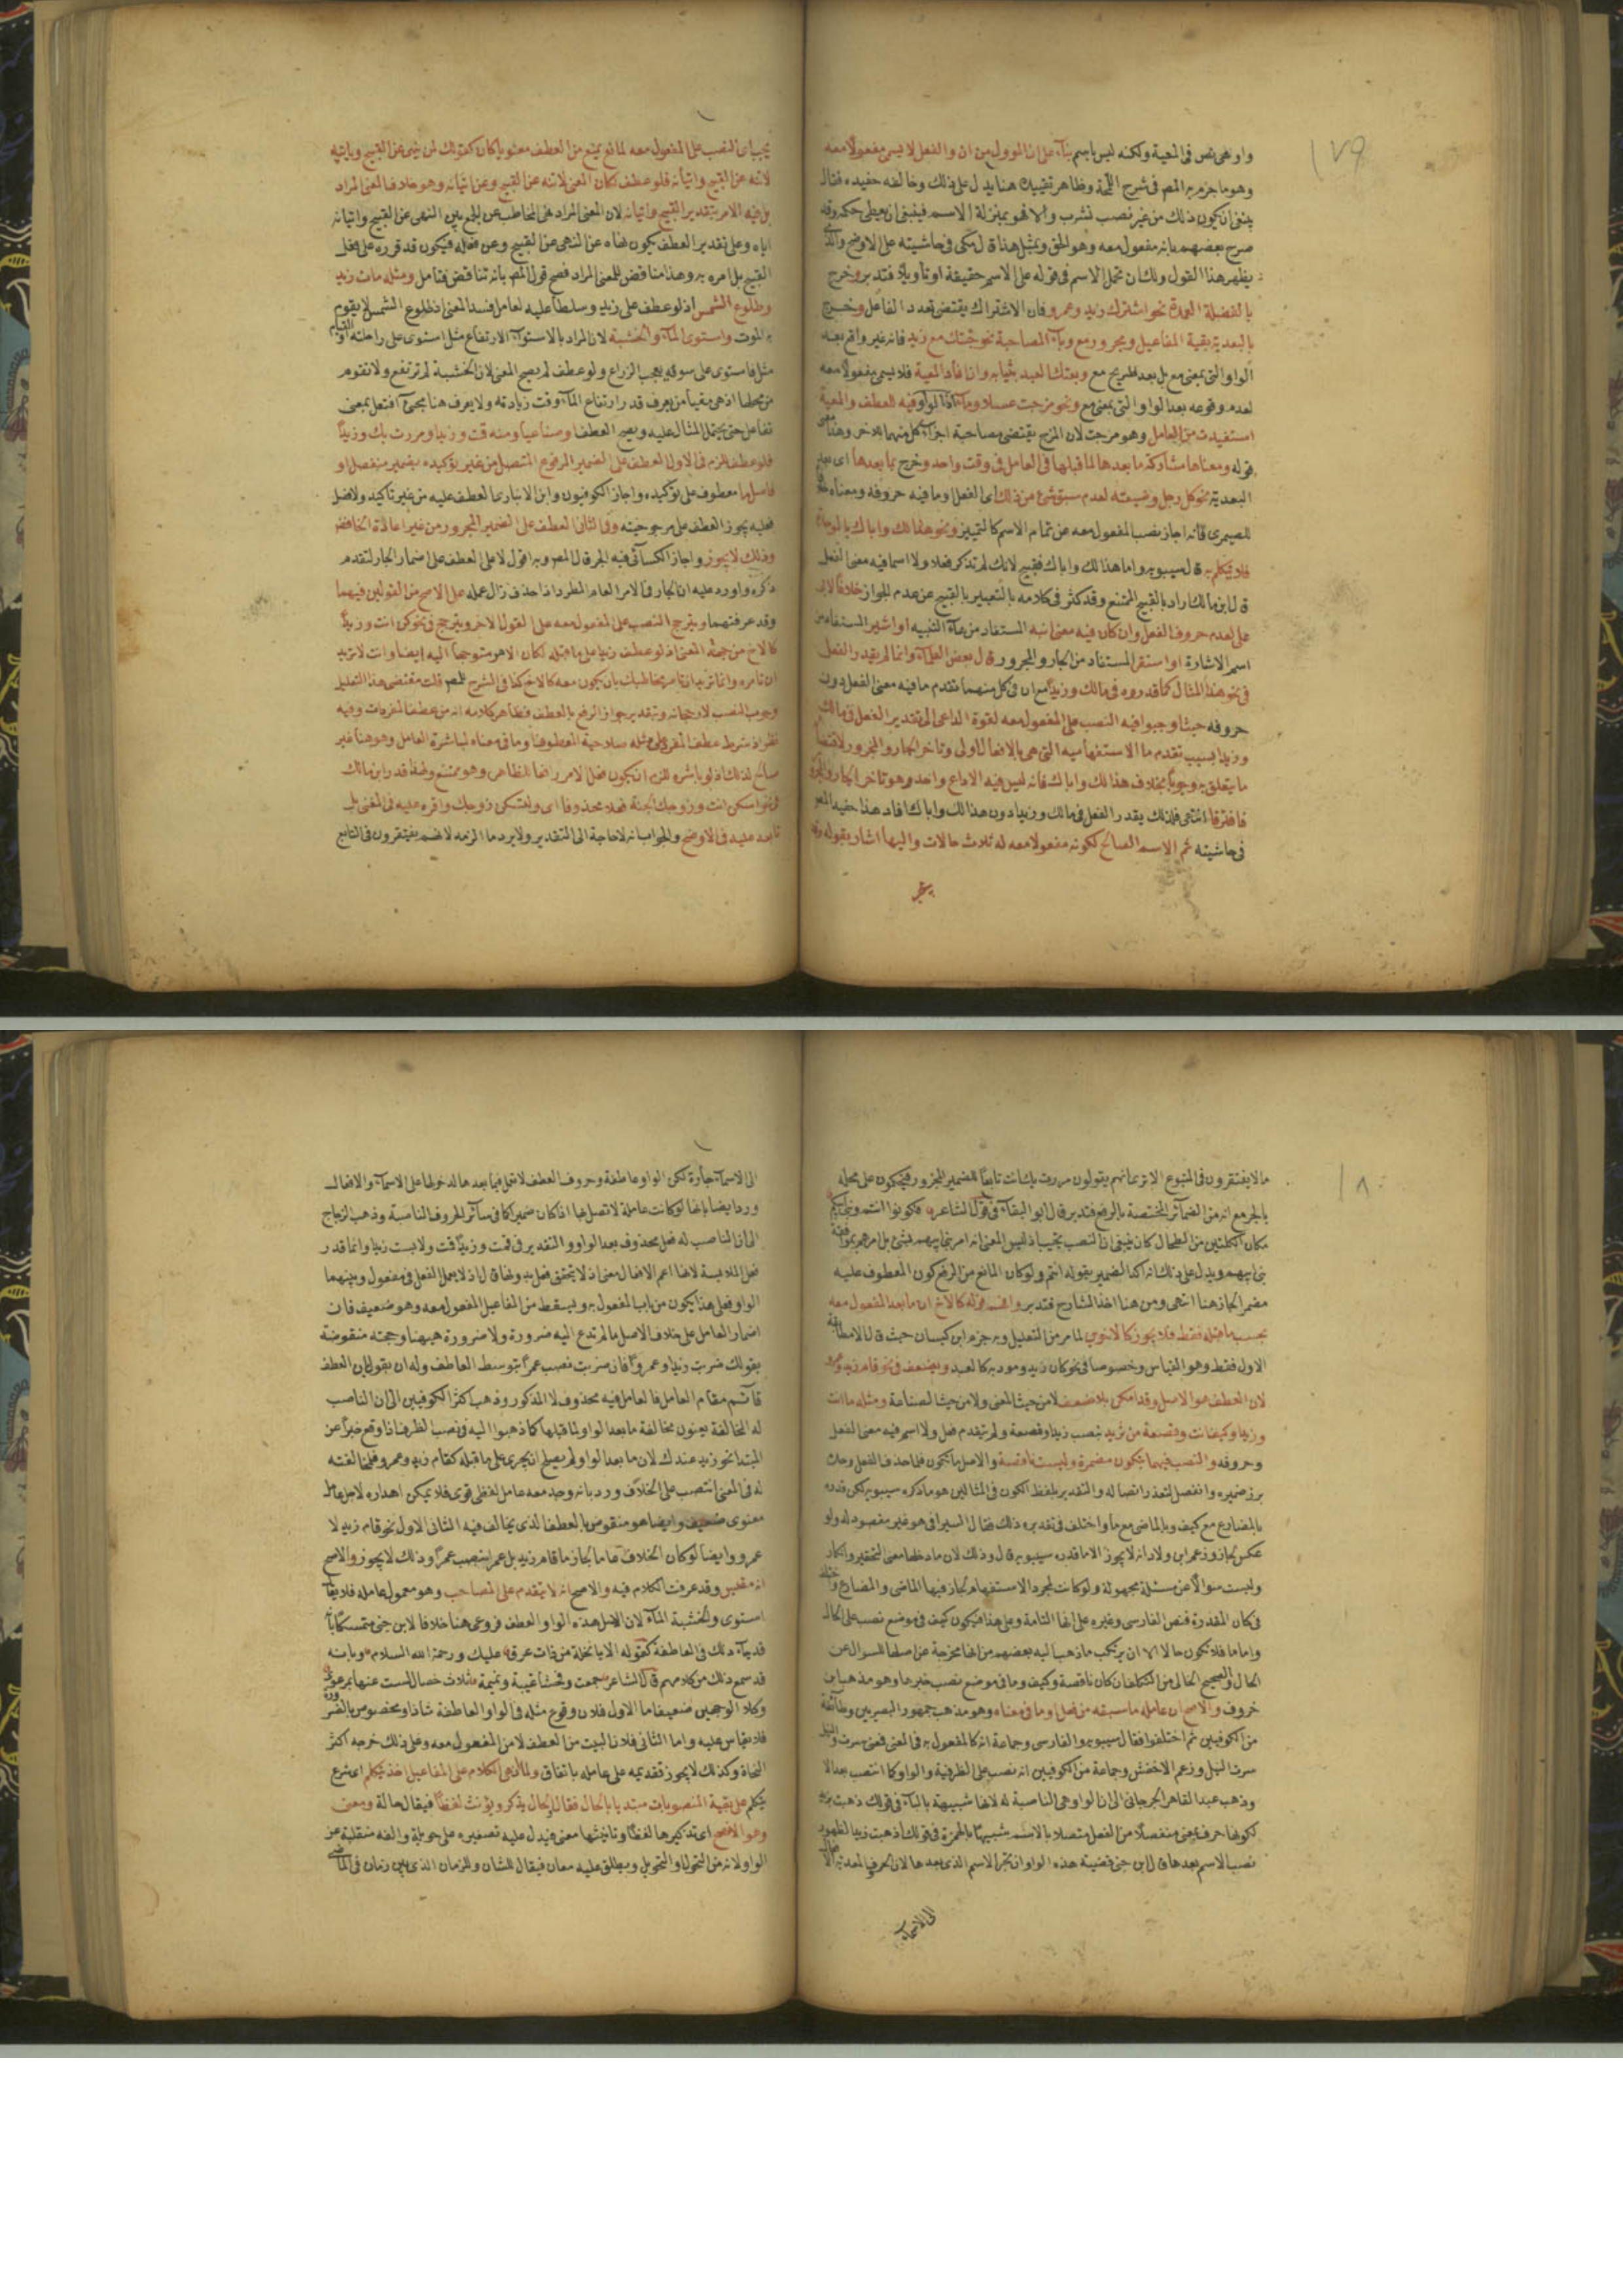 ١٧٩
واو هى نص فى المعية ولكنه ليس باسم بناء على ان المؤول من ان والفعل لا يسمى مفعولا معه
وهو ما جزم به المص فى شرح اللمحة وظاهر تقييده هنا يدل على ذلك وخالفه حفيده فقال
ينبغى ان يكون ذلك من غير نصب تشرب والا فهو بمنزلة الاسم فينبغى ان يعطى حكمه وقد
صرح بعضهم بانه مفعول معه وهو الحق وبمثل هذا قال مكى فى حاشيته على الاوضح والذى
يظهر هذا القول ولك ان تحمل الاسم فى قوله على الاسم حقيقة او تأويلا فتدبر وخرج
بالفضلة العمدة نحو اشترك زيد وعمرو فان الاشتراك يقتضى تعدد الفاعل وخرج
بالبعدية بقية المفاعيل ومجرور مع وباء المصاحبة نحو جئتك مع زيد فانه غير واقع بعد
الواو التى بمعنى مع بل بعد صريح مع وبعتك العبد بثيابه وان افاد المعية فلا يسمى مفعولا معه
لعدم وقوعه بعد الواو التى بمعنى مع ونحو مزجت عسلا وماء اذ الواو فيه العطف والمعية
استفيدت من العامل وهو مزجت لان المزج يقتضى مصاحبة اجزاء كل منهما للاخر وهذا معنى
قوله ومعناها مشاركة ما بعدها لما قبلها فى العامل فى وقت واحد وخرج بما بعدها اى بعد
البعدية نحو كل رجل وضيعته لعدم سبق شئ من ذلك اى الفعل او ما فيه حروفه ومعناه خلافا
للصيمرى فانه اجاز نصب المفعول معه عن تمام الاسم كالتمييز ونحو هذا لك واباك بالموحدة
فلا يتكلم به قال سيبويه واما هذا لك واباك فقبيح لانك لم تذكر فعلا ولا اسما فيه معنى الفعل
قال ابن مالك اراد بالقبيح الممتنع وقد كثر فى كلامه بالتعبير بالقبيح عن عدم الجواز خلافا لابى
على لعدم حروف الفعل وان كان فيه معنى انبه المستفاد من هاء التنبيه او اشير المستفاد من
اسم الاشارة او استقر المستفاد من الجار والمجرور قال بعض العلماء وانما لم يقدر الفعل
فى نحو هذا المثال كما قدروه فى مالك وزيدا مع ان فى كل منهما تقدم ما فيه معنى الفعل دون
حروفه حيث اوجبوا فيه النصب على المفعول معه لقوة الداعى الى تقدير الفعل فى مالك
وزيدا بسبب تقدم ما الاستفهامية التى هى بالافعال اولى وتاخر الجار والمجرور لاقتضا
ما يتعلق به وجوبا بخلاف هذا لك واباك فانه ليس فيه الا داع واحد وهو تاخر الجار والمجرور
فافترقا انتهى فلذلك يقدر الفعل فى مالك وزيدا دون هذا لك واباك افاد هذا حفيد المص
فى حاشيته ثم الاسم الصالح لكونه مفعولا معه له ثلاث حالات واليها اشار بقوله وقد
يجب
يجب اى النصب على المفعول معه لمانع يمنع من العطف معنويا كان كقولك لمن ينهى عن القبيح وياتيه
لا تنه عن القبيح واتيانه فلو عطف لكان المعنى لا تنه عن القبيح وعن اتيانه وهو خلاف المعنى المراد
بل فيه الامر بتقدير القبيح واتيانه لان المعنى المراد نهى المخاطب عن الجمع بين النهى عن القبيح واتيانه
اياه وعلى تقدير العطف يكون نهاه عن النهى عن القبيح وعن فعله فيكون قد قرره على فعل
القبيح بل امره به وهذا مناقض للمعنى المراد فصح قول المص بانه تناقض فتامل ومثله مات زيد
وطلوع الشمس اذ لو عطف على زيد وسلط عليه العامل فسد المعنى اذ طلوع الشمس لا يقوم
به الموت واستوى الماء والخشبة لان المراد بالاستواء الارتفاع مثل استوى على راحلته او القيام
مثل فاستوى على سوقه يعجب الزراع ولو عطف لم يصح المعنى لان الخشبة لم ترتفع ولا تقوم
من محلها اذ هى مقياس يعرف قدر ارتفاع الماء وقت زيادته ولا يعرف هنا مجئ افتعل بمعنى
تفاعل حتى يحتمل المثال عليه ويصح العطف او صناعيا ومنه قمت وزيدا ومررت بك وزيدا
فلو عطف للزم فى الاول العطف على الضمير المرفوع المتصل من غير توكيده بضمير منفصل او
فاصل ما معطوف على توكيده واجاز الكوفيون وابن الانبارى العطف عليه من غير تاكيد ولا فصل
فعليه يجوز العطف على مرجوحيته وفى الثانى العطف على الضمير المجرور من غير اعادة الخافض
وذلك لا يجوز واجاز الكسائى فيه الجر قال المص وبه اقول لا على العطف على اضمار الجار لتقدم
ذكره واورد عليه ان الجار فى الامر العام المطرد اذا حذف زال عمله على الاصح من القولين فيهما
وقد عرفتهما ويترجح النصب على المفعول معه على القول الاخر ويترجح فى نحو كن انت وزيدا
كالاخ من جهة المعنى اذ لو عطف زيدا على ما قبله لكان الامر متوجها اليه ايضا وانت لا تريد
ان تامره وانما تريد ان تامر مخاطبك بان يكون معه كالاخ كذا فى الشرح للمص قلت مقتضى هذا التعليل
وجوب النصب لا رجحانه وتقدير جواز الرفع بالعطف فظاهر كلامه انه من عطف المفردات وفيه
نظر اذ شرط عطف المفرد على مثله صلاحية المعطوف او ما فى معناه لمباشرة العامل وهو هنا غير
صالح لذلك اذ لو باشره للزم ان يكون فعل الامر رافعا للظاهر وهو ممتنع ولهذا قدر ابن مالك
فى نحو اسكن انت وزوجك الجنة فعلا محذوفا اى ولتسكن زوجك واقره عليه فى المغنى بل
تابعه عليه فى الاوضح والجواب انه لا حاجة الى التقدير ولا يرد ما الزمه لانهم يغتفرون فى التابع
١٨٠
ما لا يغتفرون فى المتبوع الا ترى انهم يقولون مررت بك انت تابعا للضمير المجرور فيحكمون على محله
بالجر مع انه من الضمائر المختصة بالرفع فتدبر قال ابو البقاء فى قول الشاعر فكونوا انتم وبنى ابيكم
مكان الكليتين من الطحال كان ينبغى ان النصب يجب اذ ليس المعنى انه امر بنى ابيهم بشئ بل امرهم بموافقة
بنى ابيهم ويدل على ذلك انه اكد الضمير بقوله انتم ولو كان المانع من الرفع كون المعطوف عليه
مضمرا لجاز هنا انتهى ومن هنا اخذ الشارح فتدبر وافهم قوله كالاخ ان ما بعد المفعول معه
بحسب ما قبله فقط فلا يجوز كالاخوين لما مر من التعليل وبه جزم ابن كيسان حيث قال المطابقة
الاول فقط وهو القياس وخصوصا فى نحو كان زيد وعمرو مديرا كالعبد ويضعف فى نحو قام زيد وعمرو
لان العطف هو الاصل وقد امكن بلا ضعف لا من حيث المعنى ولا من حيث الصناعة ومثله ما انت
وزيدا وكيف انت وقصعة من ثريد بنصب زيدا وقصعة ولم يتقدم فعل ولا اسم فيه معنى الفعل
وحروفه والنصب فيهما بتكون مضمرة وليست ناقصة والاصل ما تكون فلما حذف الفعل وحده
برز ضميره وانفصل لتعذر اتصاله والتقدير بلفظ الكون فى المثالين هو ما ذكره سيبويه لكن قدره
بالمضارع مع كيف وبالماضى مع ما واختلف فى تقديره ذلك فقال السيرافى هو غير مقصود له ولو
عكس لجاز وزعم ابن ولاد انه لا يجوز الا ما قدره سيبويه قال وذلك لان ما دخلها معنى التحقير والانكار
وليست سؤالا عن مسئلة مجهولة ولو كانت لمجرد الاستفهام لجاز فيها الماضى والمضارع واختلف
فى كان المقدرة فنص الفارسى وغيره على انها التامة وعلى هذا فيكون كيف فى موضع نصب على الحال
واما ما فلا تكون حالا الا ان يرتكب ما ذهب اليه بعضهم من انها مخرجة عن اصلها السؤال عن
الحال والصحيح الحال من المتكلم ان كان ناقصة وكيف وما فى موضع نصب خبرها وهو مذهب ابن
خروف والاصح ان عامله ما سبقه من فعل او ما فى معناه وهو مذهب جمهور البصريين وطائفة
من الكوفيين ثم اختلفوا فقال سيبويه والفارسى وجماعة انه كالمفعول به فى المعنى فمعنى سرت والنيل
سرت النيل وزعم الاخفش وجماعة من الكوفيين انه نصب على الظرفية والواو كما انتصب بعد الا
وذهب عبد القاهر الجرجانى الى ان الواو هى الناصبة له لانها شبيهة بالباء فى قولك ذهبت بزيد
لكونها حرف بمعنى منفصلا من الفعل متصلا بالاسم شبيها بالهمزة فى قولك اذهبت زيدا لظهور
نصب الاسم بعدها قال ابن جنى قضية هذه الواو ان تجر الاسم الذى بعدها لان الحرف المعدى الا
الى الاسماء
الى الاسماء جارة لكن الواو عاطفة وحروف العطف لا تعمل فيما بعدها لدخولها على الاسماء والافعال
ورد ايضا بانها لو كانت عاملة لاتصل بها اذا كان ضميرا كما فى سائر الحروف الناصبة وذهب الزجاج
الى ان الناصب له فعل محذوف بعد الواو والتقدير فى قمت وزيدا قمت ولابست زيدا وانما قدر
فعل الملابسة لانها اعم الافعال معنى اذ لا يتحقق فعل بدونها قال اذ لا يعمل الفعل فى مفعول وبينهما
الواو فعلى هذا يكون من باب المفعول به ويسقط من المفاعيل المفعول معه وهو ضعيف فان
اضمار العامل على خلاف الاصل ما لم تدع اليه ضرورة ولا ضرورة هيهنا وحجته منقوضة
بقولك ضربت زيدا وعمروا فان ضربت نصب عمرا بتوسط العاطف وله ان يقول ان العطف
قائم مقام العامل فالعامل فيه محذوف لا المذكور وذهب اكثر الكوفيين الى ان الناصب
له المخالفة يعنون مخالفة ما بعد الواو لما قبلها كما ذهبوا اليه فى نصب الظرف اذا وقع خبرا عن
المبتدا نحو زيد عندك لان ما بعد الواو لم يصلح ان يجرى على ما قبله كقام زيد وعمرو فلما خالفته
له فى المعنى انتصب على الخلاف ورد بانه وجد معه عامل لفظى قوى فلا يمكن اهداره لاجل عامل
معنوى ضعيف وايضا هو منقوض بالعطف الذى يخالف فيه الثانى الاول نحو قام زيد لا
عمرو وايضا لو كان الخلاف عاملا لجاز ما قام زيد بل عمرا بنصب عمرا وذلك لا يجوز والاصح
انه مقيس وقد عرفت الكلام فيه والاصح انه لا يتقدم على المصاحب وهو معمول عامله فلا يقال
استوى والخشبة الماء لان الاصل هذه الواو العطف فروعى هنا خلافا لابن جنى متمسكا بان
قد جاء ذلك فى العاطفة كقوله الا يا نخلة من ذات عرق عليك ورحمة الله السلام وبانه
قد سمع ذلك من كلامهم قال الشاعر جمعت وفحشا غيبة ونميمة ثلاث خصال لست عنها بمرعوى
وكلا الوجهين ضعيف اما الاول فلان وقوع مثله فى الواو العاطفة شاذ او مخصوص بالضرورة
فلا يقاس عليه واما الثانى فلان البيت من العطف لا من المفعول معه وعلى ذلك خرجه اكثر
النحاة وكذلك لا يجوز تقديمه على عامله باتفاق ولما انهى الكلام على المفاعيل اخذ يتكلم اى شرع
يتكلم على بقية المنصوبات مبتديا بالحال فقال الحال يذكر ويؤنث لفظا فيقال حالة ومعنى
وهو الافصح اى تذكيرها لفظا وتانيثها معنى فيدل عليه تصغيره على حويلة والفه منقلبة عن
الواو لانه من التحول او التحويل ويطلق عليه معان فيقال للشان وللزمان الذى بين زمان فى الماضى